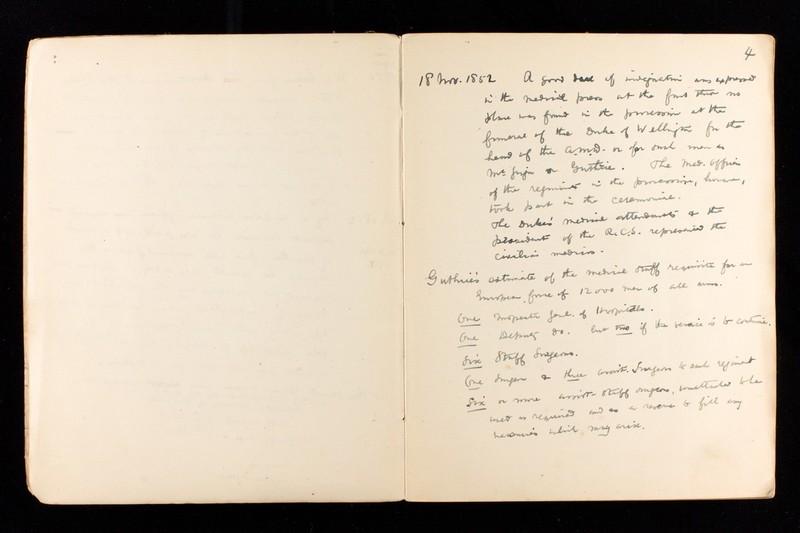 4
18 Nov. 1852 A good deal of indignation was expressed
in the medical press at the fact that no
place was found in the procession at the
funeral of the Duke of Wellington for the
head of the A.M.D. or for such men as
Mr Guthrie. The Med. officers
of the regiments in the procession, however,
took part in the ceremonies.
The Duke's medical attendants & the
president of the R.C.S. represented the
civilian medicos.
Guthrie's estimate of the medical staff requisite for an
European force of 12000 men of all arms.
One Inspector Genl. of Hospitals.
One Deputy do. but two if the service is to continue.
Six Staff Surgeons.
One Surgeon & three assist. Surgeons to each regiment
Six or more assist. Staff surgeons, unattached to be
used as required and as a reserve to fill any
vacancies which may arise.